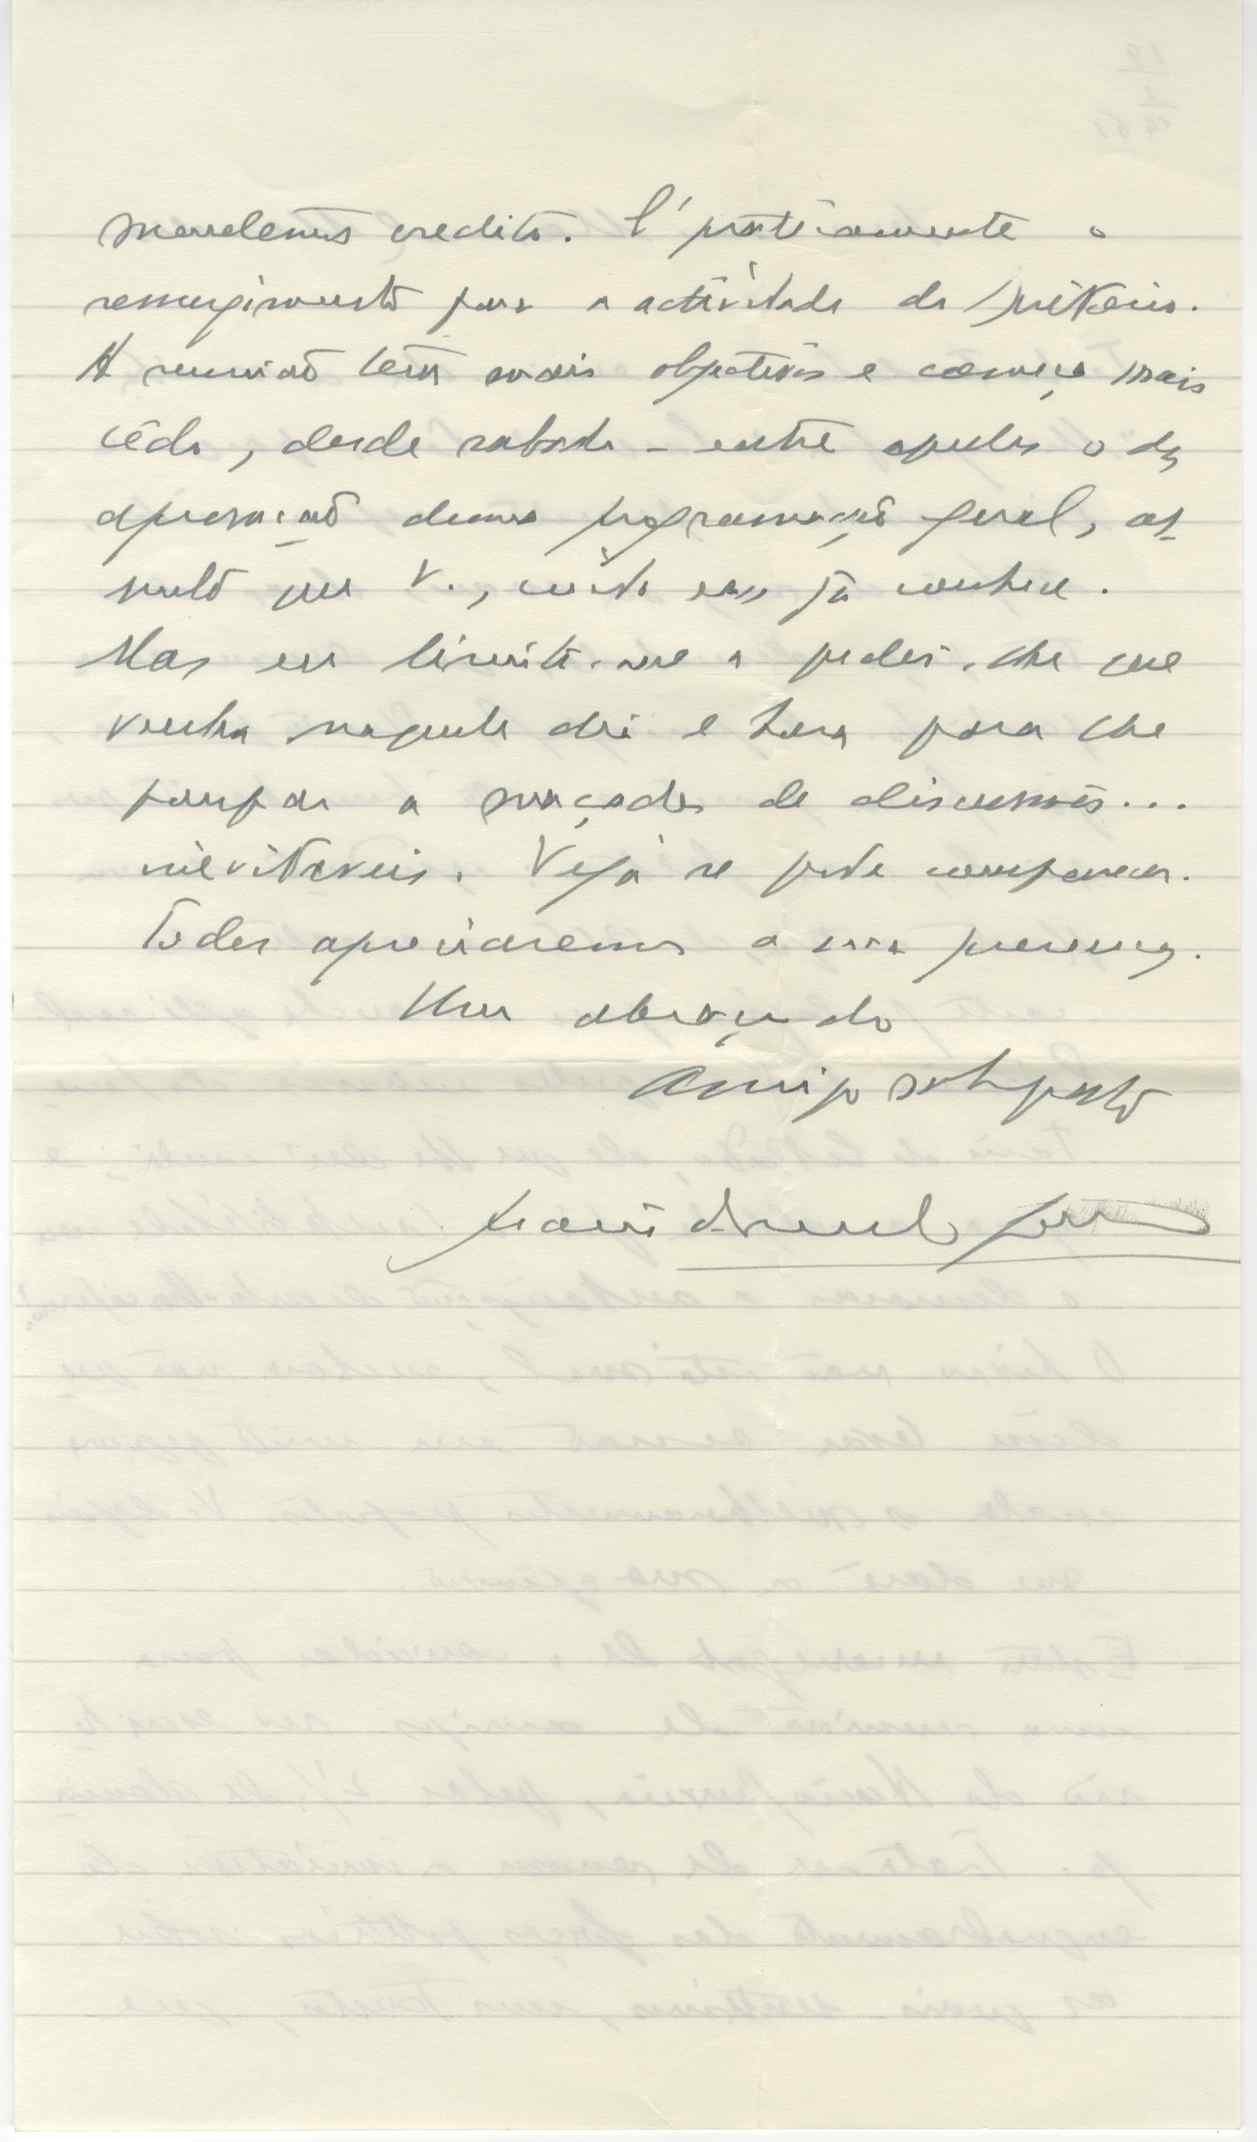 crédito. É pràticamente o
ressurgimento para a actividade do
A reunião tem mais objectivos e começa mais
cêdo, desde sabado – entre aqueles o da
apreciação duma programação geral, as
sunto que V., creio eu, já conhece.
Mas eu limito-me a pedir-lhe que
venha naquele dia e hora para lhe
poupar a maçada de discussões...
inevitaveis. Veja se pode comparecer.
Todos apreciaremos a sua presença.
Um abraço do
Amigo